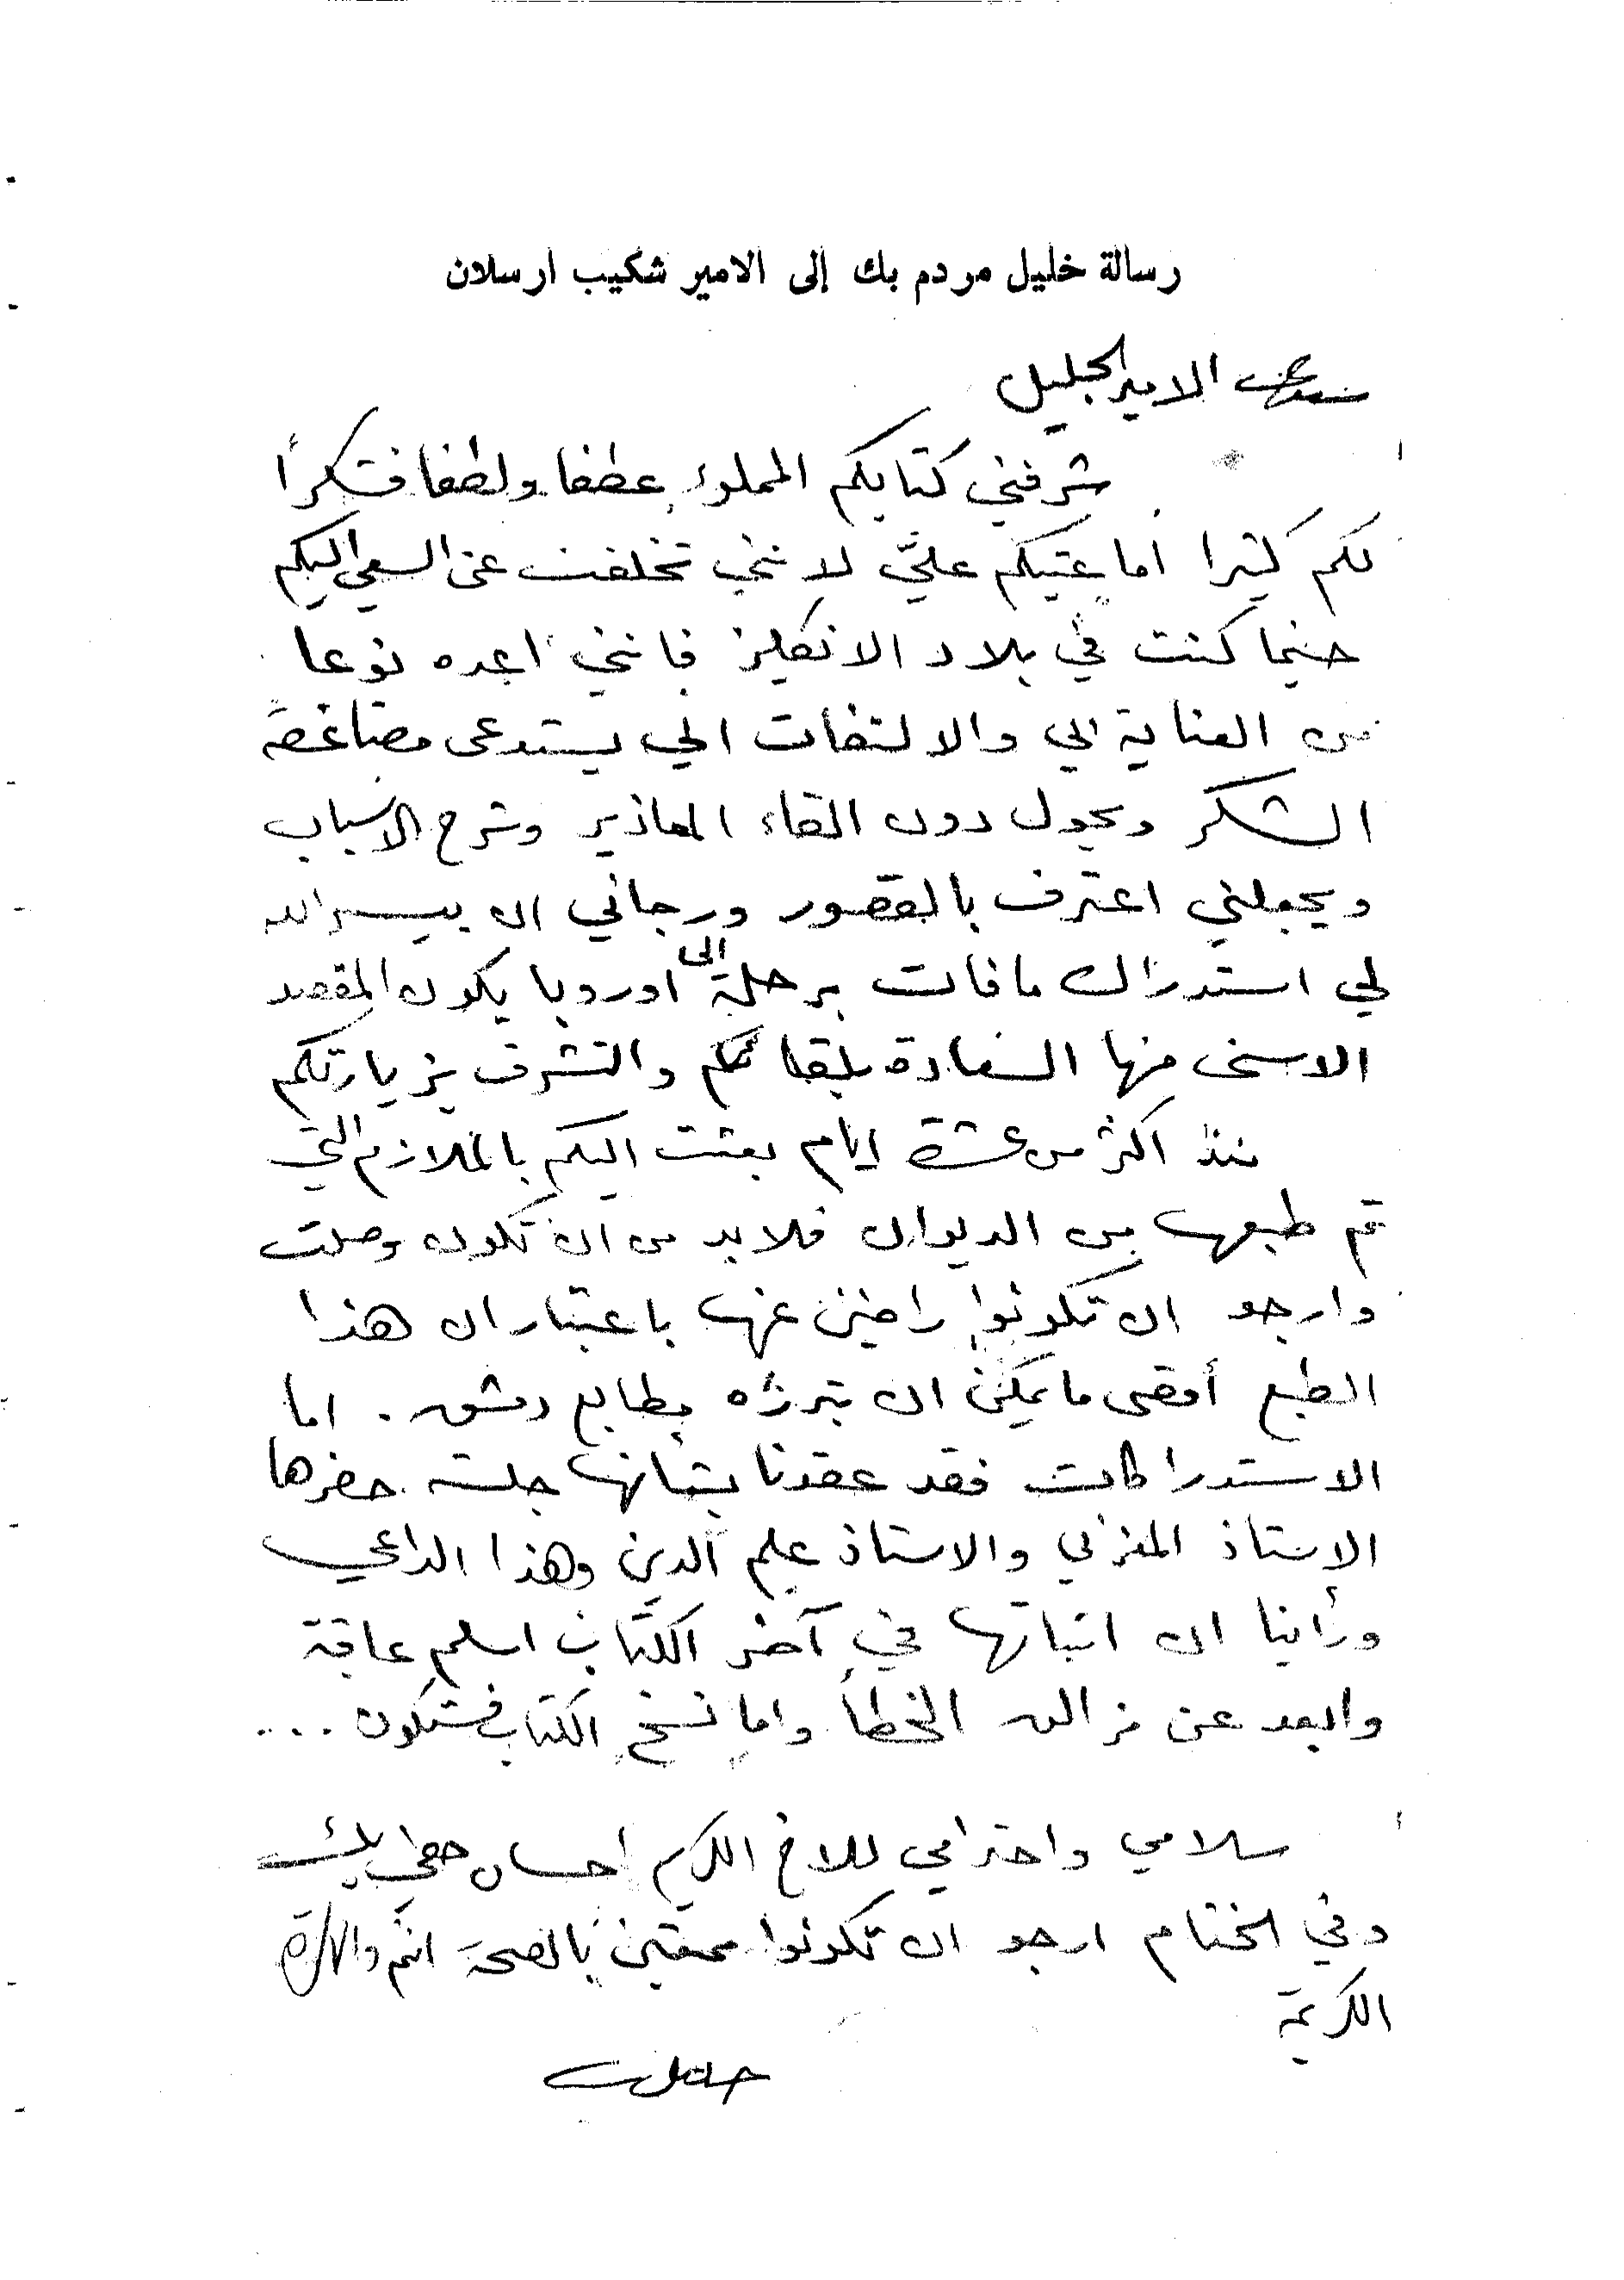 رسالة خليل مردم بك إلى الامير شكيب ارسلان
الامير الجليل
شرفني كتابكم المملوء عطفا ولطفا فشكراً
لكم كثيرا أما عتبكم عليَّ لانني تخلفت عن السعي اليكم
حينما كنت في بلاد الانكليز فانني اعده نوعا
من العناية بي والالتفات الي يستدعى مضاعفة
الشكر ويحول دون القاء المعاذير وشرح الاسباب
ويجعلني اعترف بالقصور ورجائي ان ييسر الله
لي استدراك ما فات برحلة الى اوروبا يكون المقصد
الاسنى منها السعادة بلقائكم والتشرف بزيارتكم
منذ اكثر من عشرة ايام بعثت اليكم بالملازم التي
تم طبعها من الديوان فلا بد من ان تكون وصلت
وارجو ان تكونوا راضين عنها باعتبار ان هذا
الطبع أقصى ما يمكن ان تبرزه مطابع دمشق . اما
الاستدراكات فقد عقدنا بشأنها جلسة حضرها
الاستاذ المغربي والاستاذ علم الدين وهذا الداعي
ورأينا ان اثباتها في آخر الكتاب اسلم عاقبة
وابعد عن مزالق الخطأ واما نسخ الكتاب فستكون ...
سلامي واحترامي للاخ الكريم احسان حقي بك
وفي الختام ارجو ان تكونوا ممتعين بالصحة انتم والاسرة
الكريمة